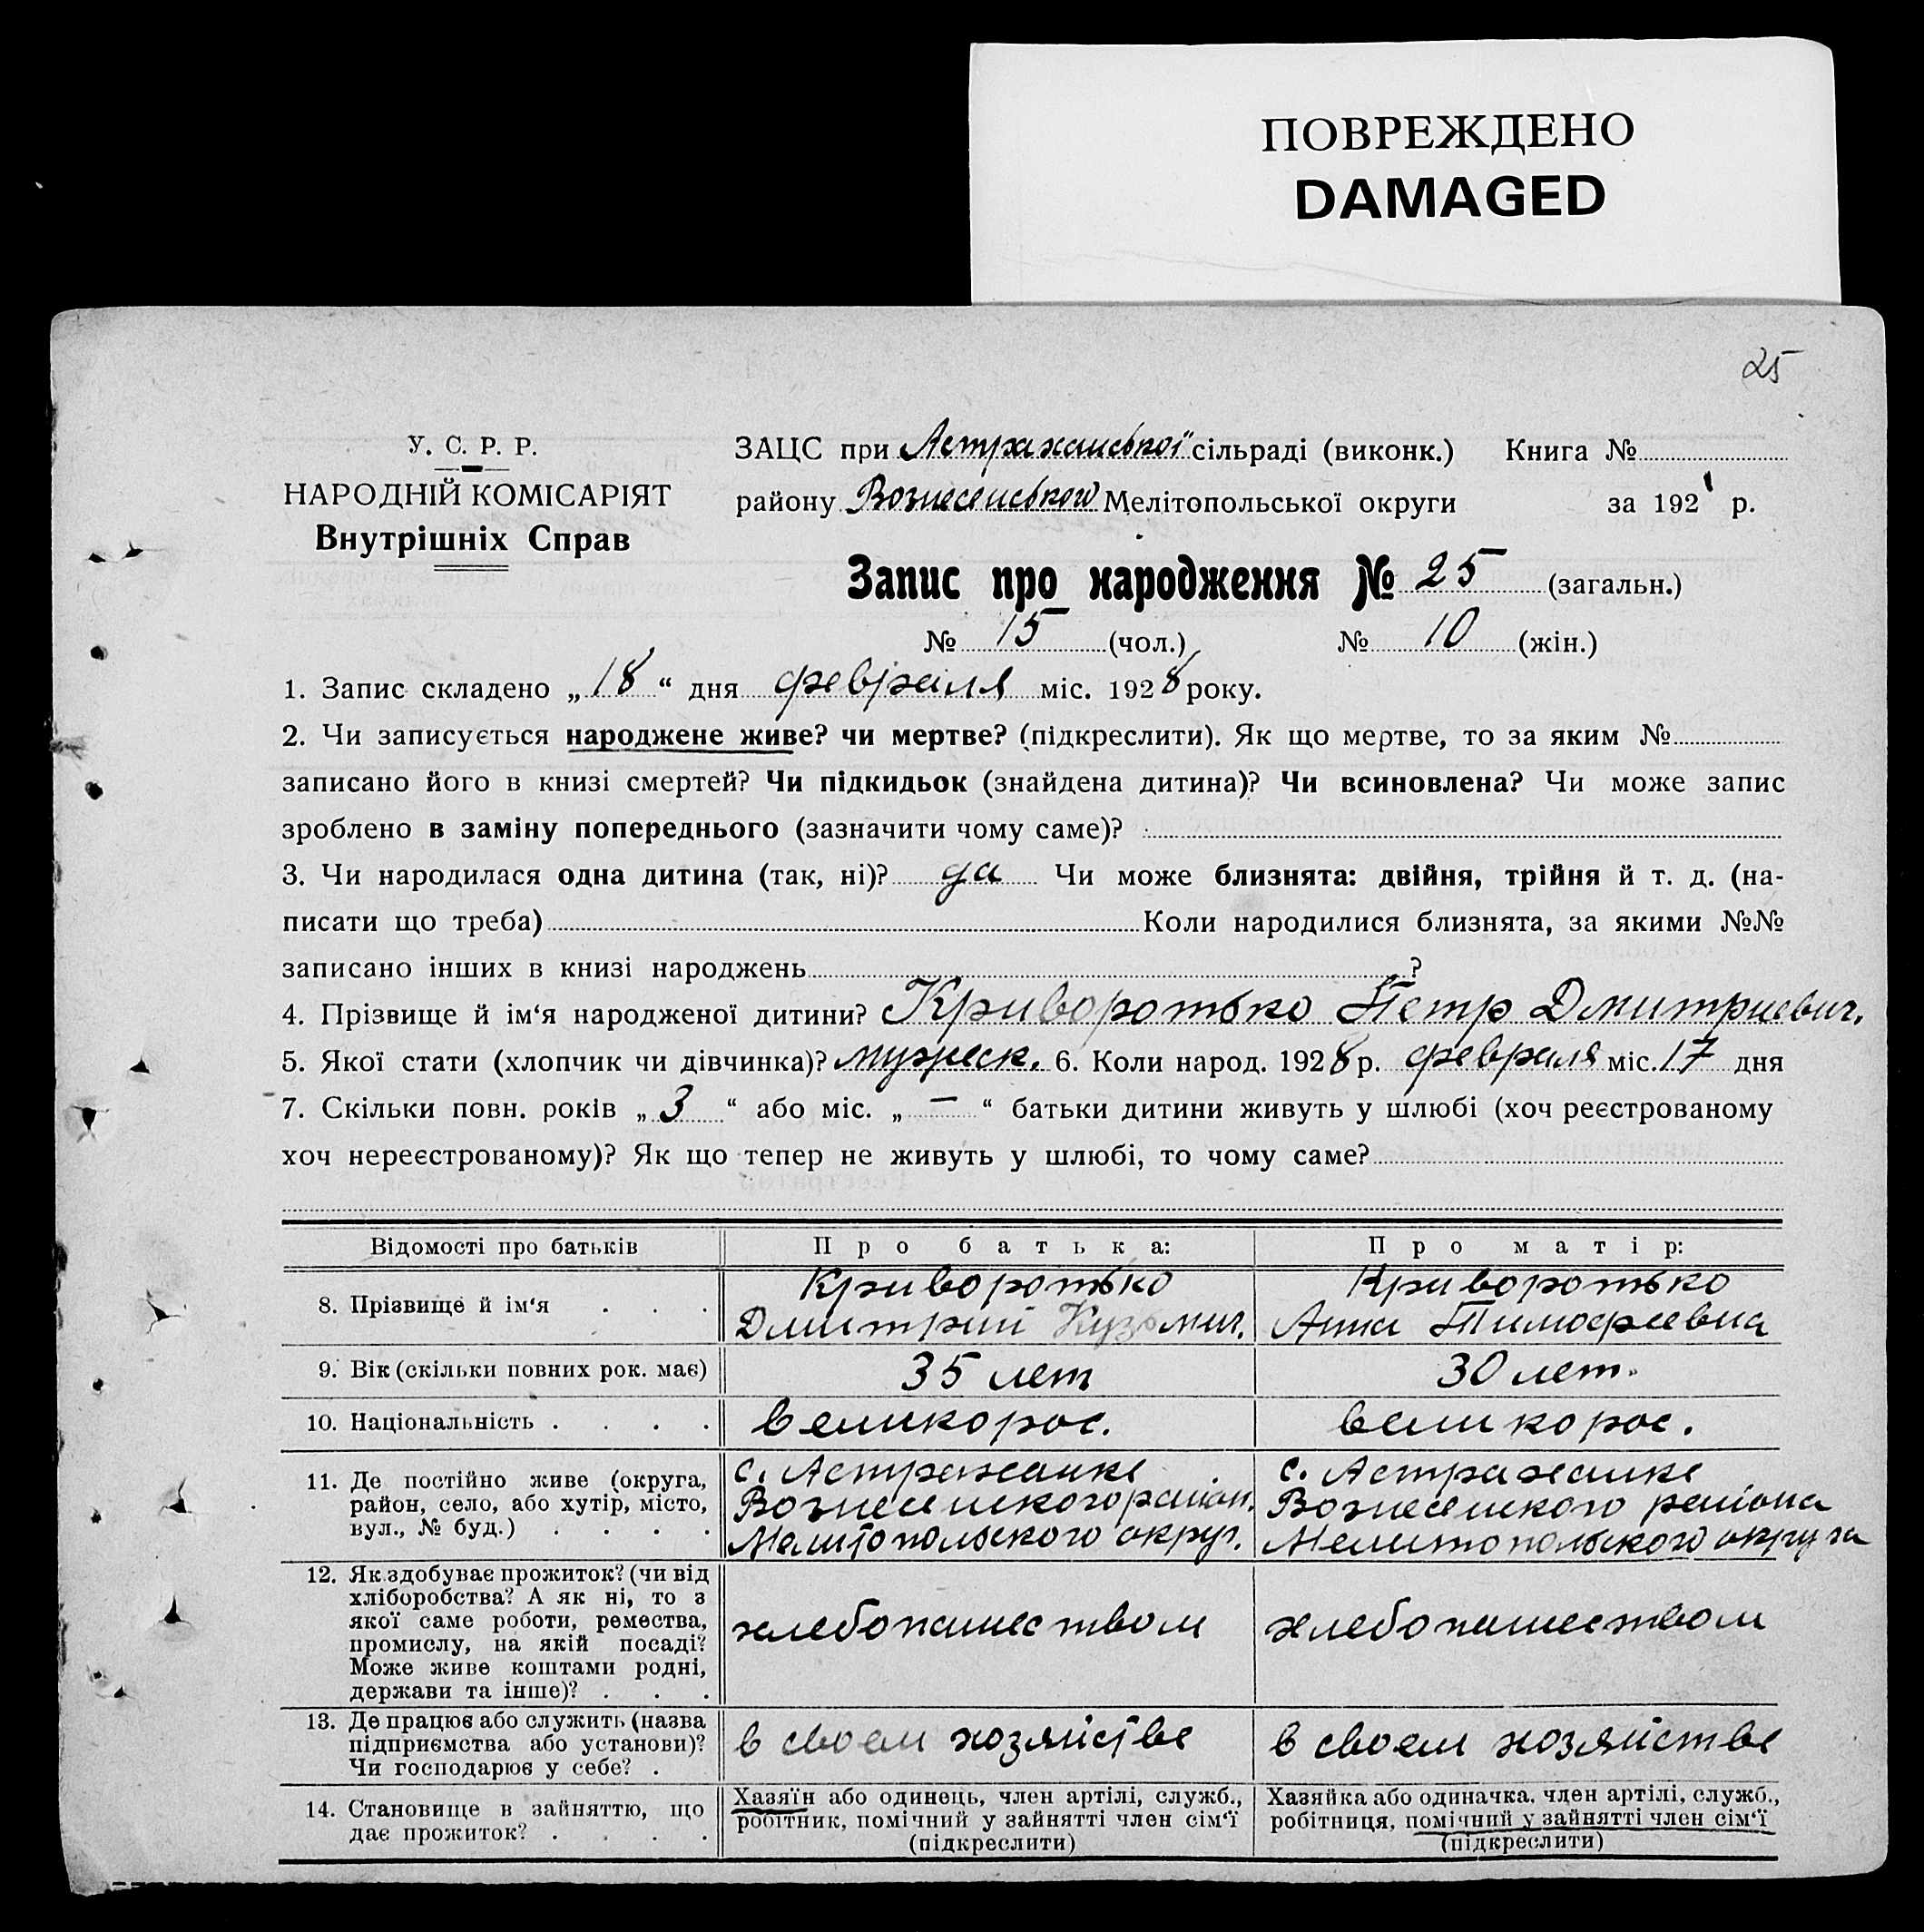 ПОВРЕЖДЕНО
DAMAGED
25
У. С. Р. Р.
НАРОДНІЙ КОМІСАРІЯТ
Внутрішніх Справ
ЗАЦС при Астраханської сільраді (виконк.) Книга №
району Вознесенського Мелітопольської округи за 192 р.
Запис про народження № 25 (загальн.)
№ 15 (чол.) № 10 (жін.)
1. Запис складено „18“ дня февраля міс. 1928 року.
2. Чи записується народжене живе? чи мертве? (підкреслити). Як що мертве, то за яким №
записано його в книзі смертей? Чи підкидьок (знайдена дитина)? Чи всиновлена? Чи може запис
зроблено в заміну попереднього (зазначити чому саме)?
3. Чи народилася одна дитина (так, ні)? да Чи може близнята: двійня, трійня й т. д. (на-
писати що треба) Коли народилися близнята, за якими №№
записано інших в книзі народжень ?
4. Прізвище й ім‘я народженої дитини? Криворотько Петр Дмитриевич.
5. Якої стати (хлопчик чи дівчинка)? мужеск. 6. Коли народ. 1928 р. февраля міс. 17 дня
7. Скільки повн. років „3“ або міс. „—“ батьки дитини живуть у шлюбі (хоч реєстрованому
хоч нереєстрованому)? Як що тепер не живуть у шлюбі, то чому саме?
Відомості про батьків
Про батька:
Про матір:
8. Прізвище й ім‘я . . .
Криворотько
Дмитрий Кузьмич.
Криворотько
Анна Тимофеевна
9. Вік (скільки повних рок. має)
35 лет
30 лет.
10. Національність . . . .
великорос.
великорос.
11. Де постійно живе (округа,
район, село, або хутір, місто,
вул., № буд.) . . . .
с. Астраханке
Вознесенского район.
Мелитопольского округ.
с. Астраханке
Вознесенского района
Мелитопольского округа
12. Як здобуває прожиток? (чи від
хліборобства? А як ні, то з
якої саме роботи, ремества,
промислу, на якій посаді?
Може живе коштами родні,
держави та інше)? . . .
хлебопашеством
хлебопашеством
13. Де працює або служить (назва
підприємства або установи)?
Чи господарює у себе? .
в своем хозяйстве
в своем хозяйстве
14. Становище в зайняттю, що
дає прожиток? . . . .
Хазяїн або одинець, член артілі, служб.,
робітник, помічний у зайнятті член сім‘ї
(підкреслити)
Хазяйка або одиначка, член артілі, служб.,
робітниця, помічний у зайнятті член сім‘ї
(підкреслити)